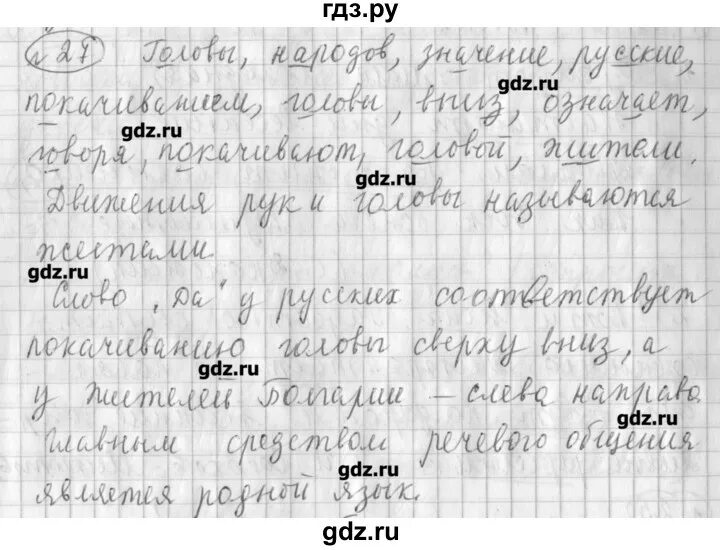 гдз.ру
27 Головы, народов, значение, русские,
gdz.ru
покачиванием, головы, вниз, означает,
gdz.ru
говоря, покачивают, головой, жители.
gdz.ru
Движения рук и головы называются
жестами.
gdz.ru
Слово „Да" у русских соответствует
покачиванию головы сверху вниз, а
gdz.ru
у жителей Болгарии – слева направо.
gdz.ru
Главным средством речевого общения
gdz.ru
является родной язык.
gdz.ru